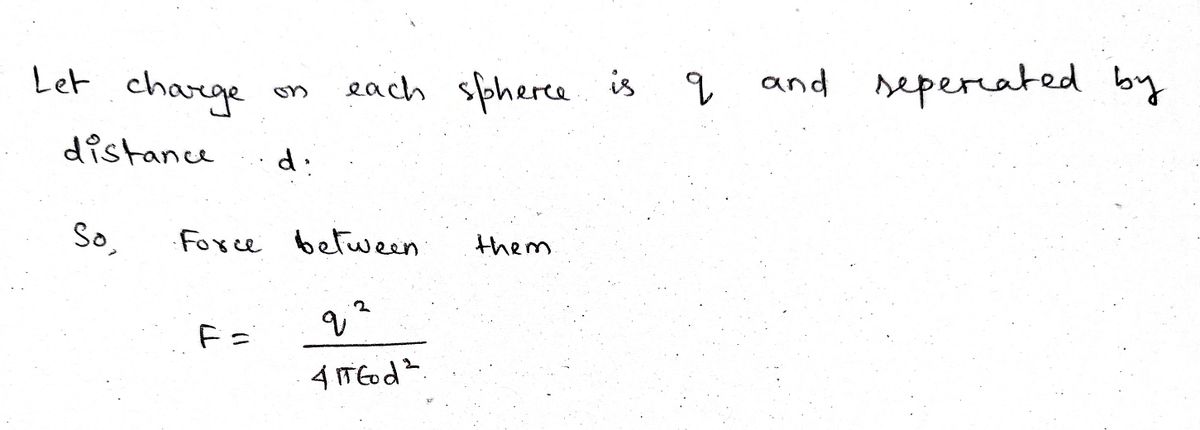 Let charge on each spheree is q and seperated by
distance d.
So, Force between them
F = q²
4πϵ0d²